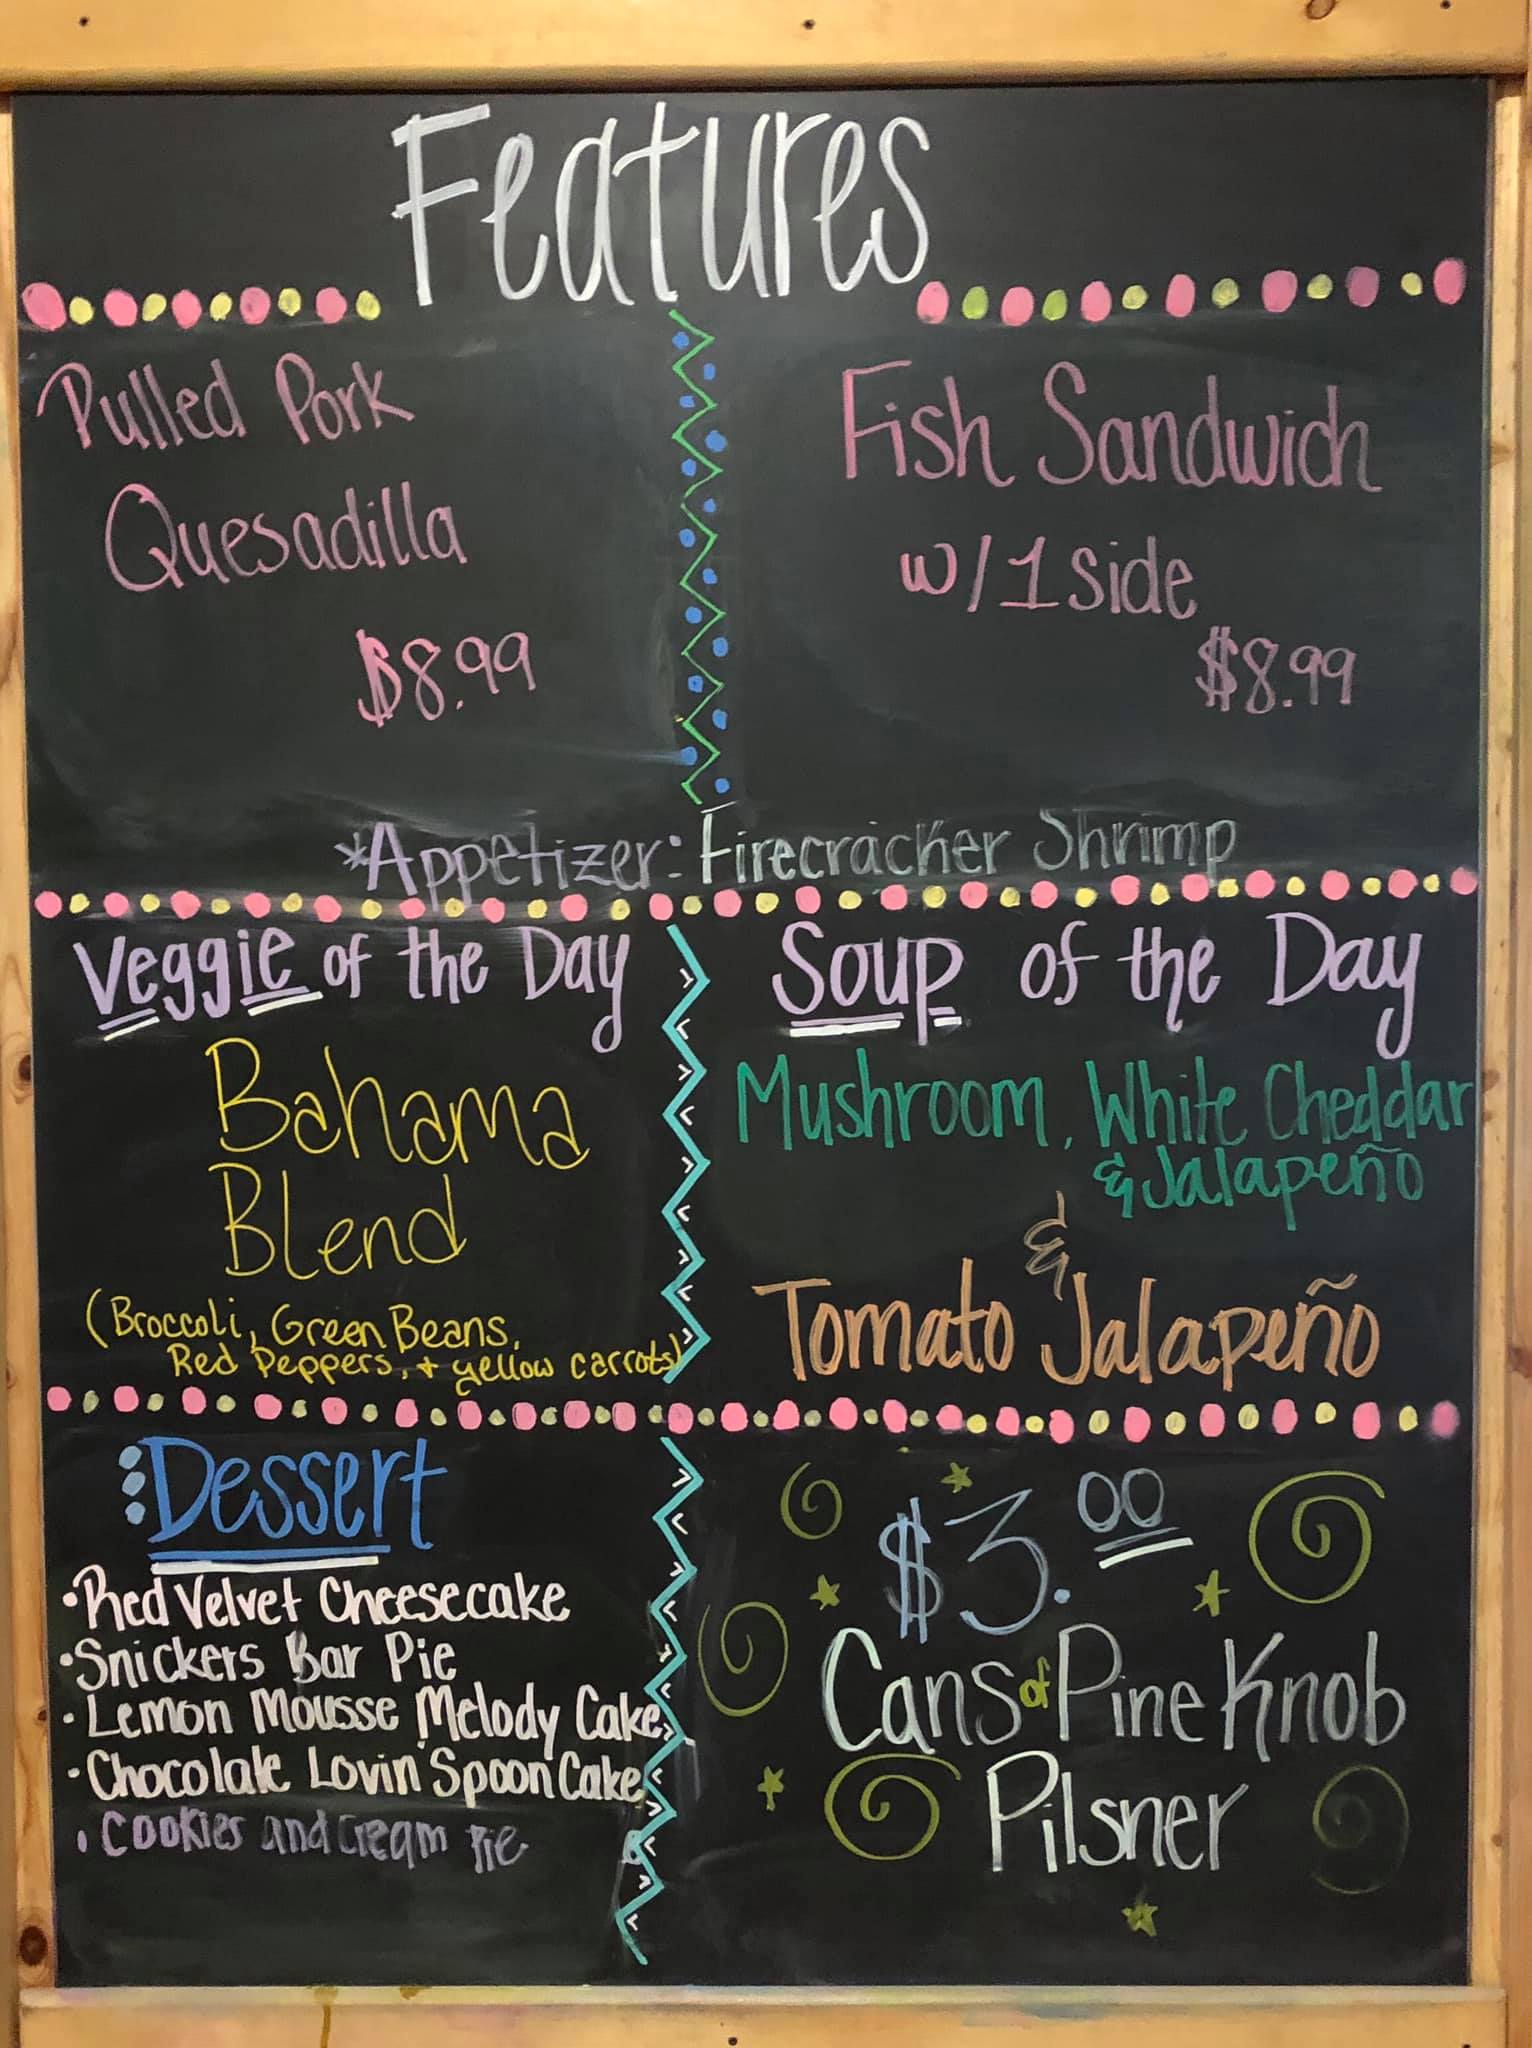 Features
Pulled Pork
Quesadilla
$8.99
Fish Sandwich
w/1 side
$8.99
*Appetizer: Firecracker Shrimp
Veggie of the Day
Bahama
Blend
(Broccoli, Green Beans,
Red Peppers, + yellow carrots)
Soup of the Day
Mushroom, White Cheddar
& Jalapeño
&
Tomato Jalapeño
Dessert
• Red Velvet Cheesecake
• Snickers Bar Pie
• Lemon Mousse Melody Cake
• Chocolate Lovin' Spoon Cake
• Cookies and Cream Pie
$3.00
Cans of Pine Knob
Pilsner